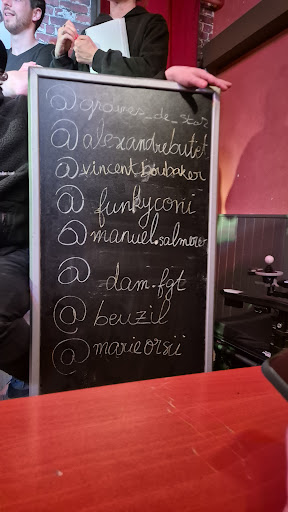 @graines_de_star
@alexandrebutet
@vincent.boubaker
@funkyconi
@manuel.salmero
@_dam.fgt
@beuzil
@marieorsii